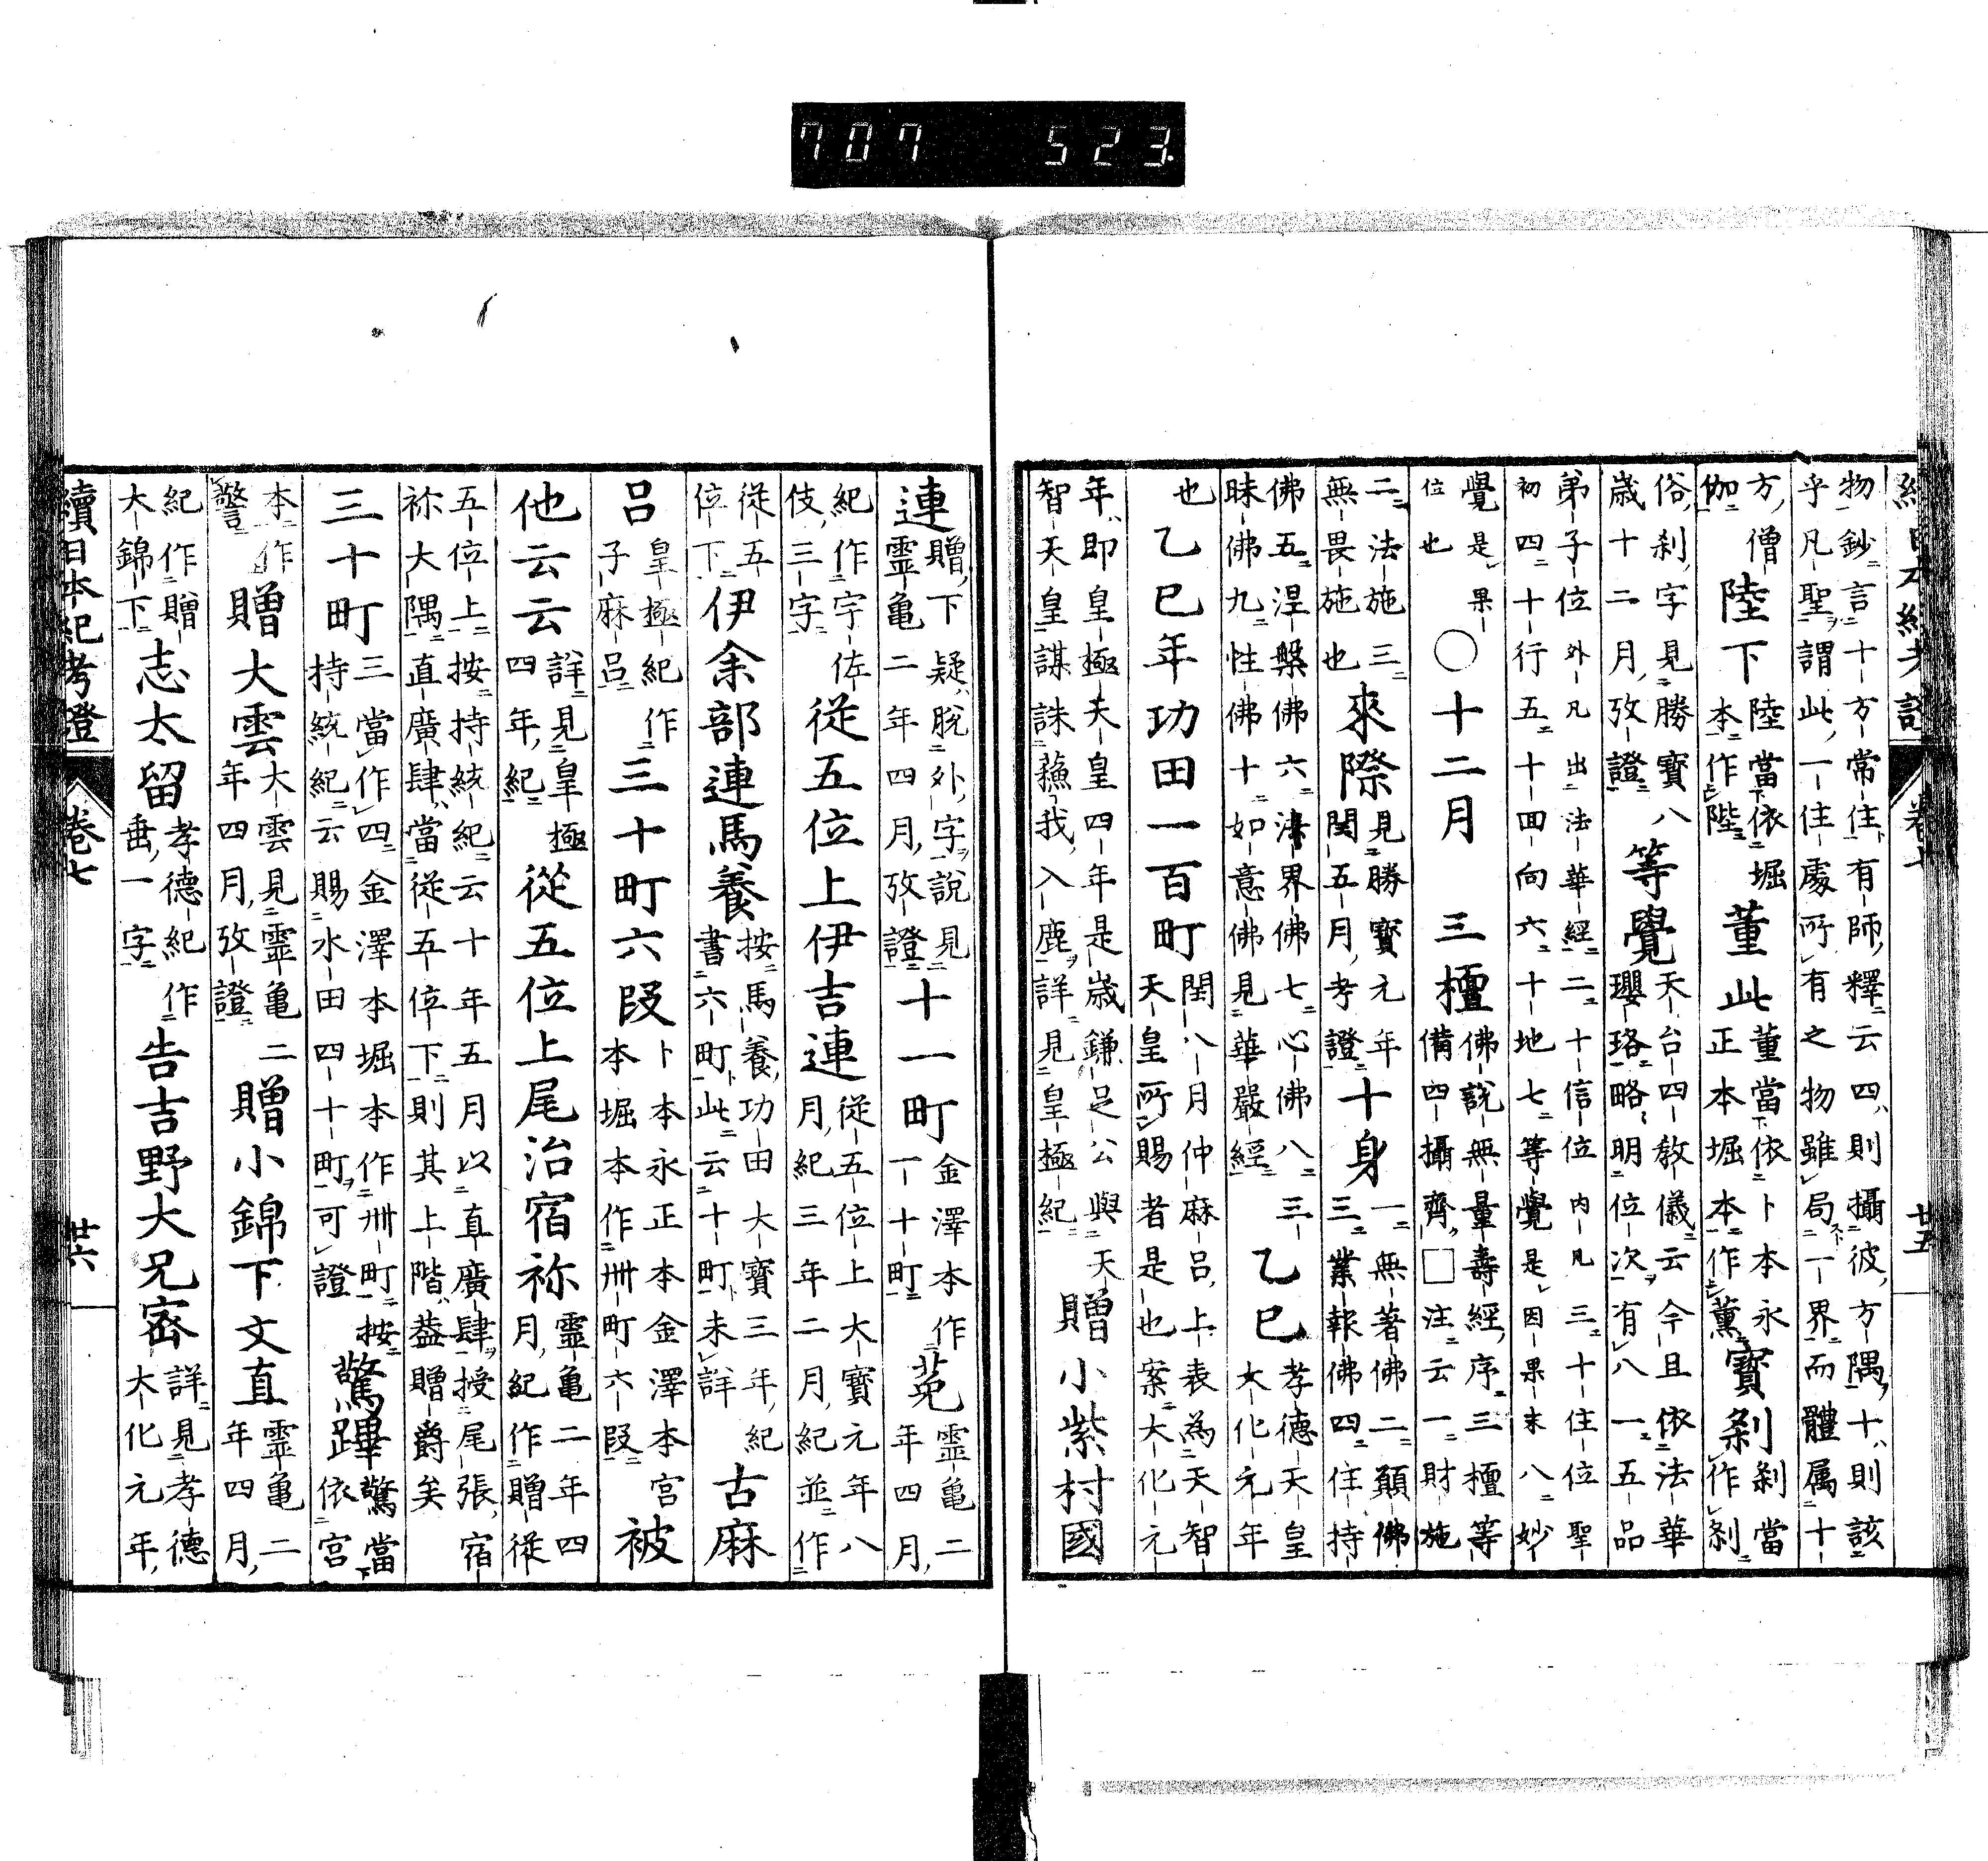 707 523
續日本紀考證 卷七 廿五
物鈔言十方常住有師釋云四則攝彼方隅十則該
乎凡聖謂此一住處所有之物雖局一界而體属十
方僧
伽
陸下
陸當依堀
本作陛
董此
董當依卜本永
正本堀本作薰
寳剎
剎當
作刹
俗刹字見勝寶八
歳十二月攷證
等覺
天台四敎儀云今且依法華
瓔珞略明位次有八一五品
弟子位外凡出法華經二十信位内凡三十住位聖
初四十行五十回向六十地七等覺是因果末八妙
覺是果
位也
〇十二月 三檀
佛説無量壽經序三檀等
備四攝齊□注云一財施
二法施三
無畏施也
來際
見勝寳元年
閏五月考證
十身
一無著佛二願佛
三業報佛四住持
佛五涅槃佛六法界佛七心佛八三
昧佛九性佛十如意佛見華嚴經
乙巳
孝德天皇
大化元年
也
乙巳年功田一百町
閏八月仲麻呂上表為天智
天皇所賜者是也案大化元
年即皇極天皇四年是歳鎌足公與天
智天皇謀誅蘇我入鹿詳見皇極紀
贈小紫村國
連
贈下疑脱外字説見
靈亀二年四月攷證
十一町
金澤本作
一十町
菟
靈亀二
年四月
紀作字佐
伎三字
從五位上伊吉連
從五位上大寳元年八
月紀三年二月紀並作
從五
位下
伊余部連馬養
按馬養功田大寶三年紀
書六町此云十町未詳
古麻
呂
皇極紀作
子麻呂
三十町六段
卜本永正本金澤本宮
本堀本作卅町六段
被
他云云
詳見皇極
四年紀
從五位上尾治宿祢
靈亀二年四
月紀作贈從
五位上按持統紀云十年五月以直廣肆授尾張宿
祢大隅直廣肆當從五位下則其上階葢贈爵矣
三十町
三當作四金澤本堀本作卅町按
持統紀云賜水田四十町可證
驚蹕
驚當
依宮
本作
警
贈大雲
大雲見靈亀二
年四月攷證
贈小錦下文直
靈亀二
年四月
紀作贈
大錦下
志太留
孝德紀作
垂一字
告吉野大兄密
詳見孝德
大化元年
續日本紀考證 卷七 廿六